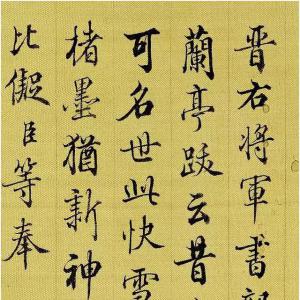 晋右將軍書
蘭亭跋云昔
可名世此快雪
楮墨猶新神
比儗臣等奉